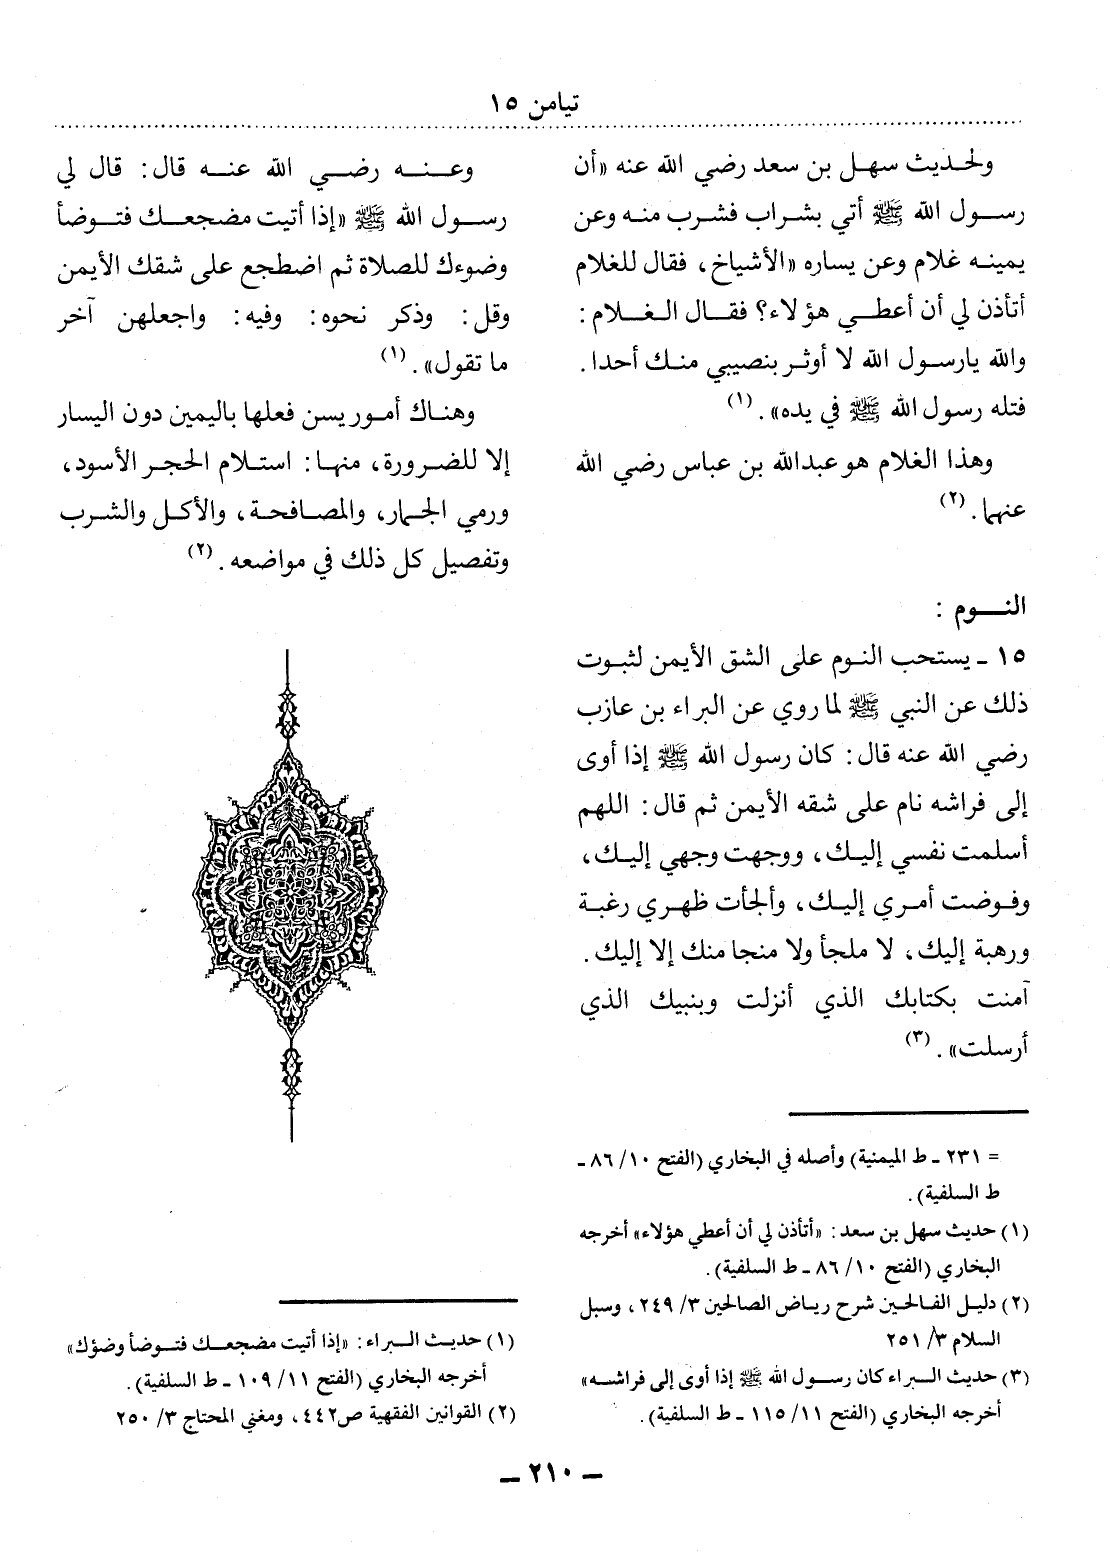 تيامن ١٥
ولحديث سهل بن سعد رضي الله عنه «أن
رسول الله ﷺ أتي بشراب فشرب منه وعن
يمينه غلام وعن يساره «الأشياخ، فقال للغلام
أتأذن لي أن أعطي هؤلاء؟ فقال الغلام:
والله يارسول الله لا أوثر بنصيبي منك أحدا.
فتله رسول الله ﷺ في يده». (١)
وهذا الغلام هو عبدالله بن عباس رضي الله
عنهما. (٢)
النوم :
١٥ ـ يستحب النوم على الشق الأيمن لثبوت
ذلك عن النبي ﷺ لما روي عن البراء بن عازب
رضي الله عنه قال: كان رسول الله ﷺ إذا أوى
إلى فراشه نام على شقه الأيمن ثم قال: اللهم
أسلمت نفسي إليك، ووجهت وجهي إليك،
وفوضت أمري إليك، وألجأت ظهري رغبة
ورهبة إليك، لا ملجأ ولا منجا منك إلا إليك.
آمنت بكتابك الذي أنزلت وبنبيك الذي
أرسلت». (٣)
= ٢٣١ ـ ط الميمنية) وأصله في البخاري (الفتح ١٠/ ٨٦ ـ
ط السلفية).
(١) حديث سهل بن سعد: «أتأذن لي أن أعطي هؤلاء» أخرجه
البخاري (الفتح ١٠/ ٨٦ ـ ط السلفية).
(٢) دليل الفالحين شرح رياض الصالحين ٣/ ٢٤٩، وسبل
السلام ٣/ ٢٥١
(٣) حديث البراء كان رسول الله ﷺ إذا أوى إلى فراشه»
أخرجه البخاري (الفتح ١١/ ١١٥ ـ ط السلفية).
وعنه رضي الله عنه قال: قال لي
رسول الله ﷺ «إذا أتيت مضجعك فتوضأ
وضوءك للصلاة ثم اضطجع على شقك الأيمن
وقل: وذكر نحوه: وفيه: واجعلهن آخر
ما تقول». (١)
وهناك أمور يسن فعلها باليمين دون اليسار
إلا للضرورة، منها: استلام الحجر الأسود،
ورمي الجمار، والمصافحة، والأكل والشرب
وتفصيل كل ذلك في مواضعه. (٢)
(١) حديث البراء: «إذا أتيت مضجعك فتوضأ وضؤك»
أخرجه البخاري (الفتح ١١/ ١٠٩ ـ ط السلفية).
(٢) القوانين الفقهية ص٤٤٢، ومغني المحتاج ٣/ ٢٥٠
ـ ٢١٠ ـ